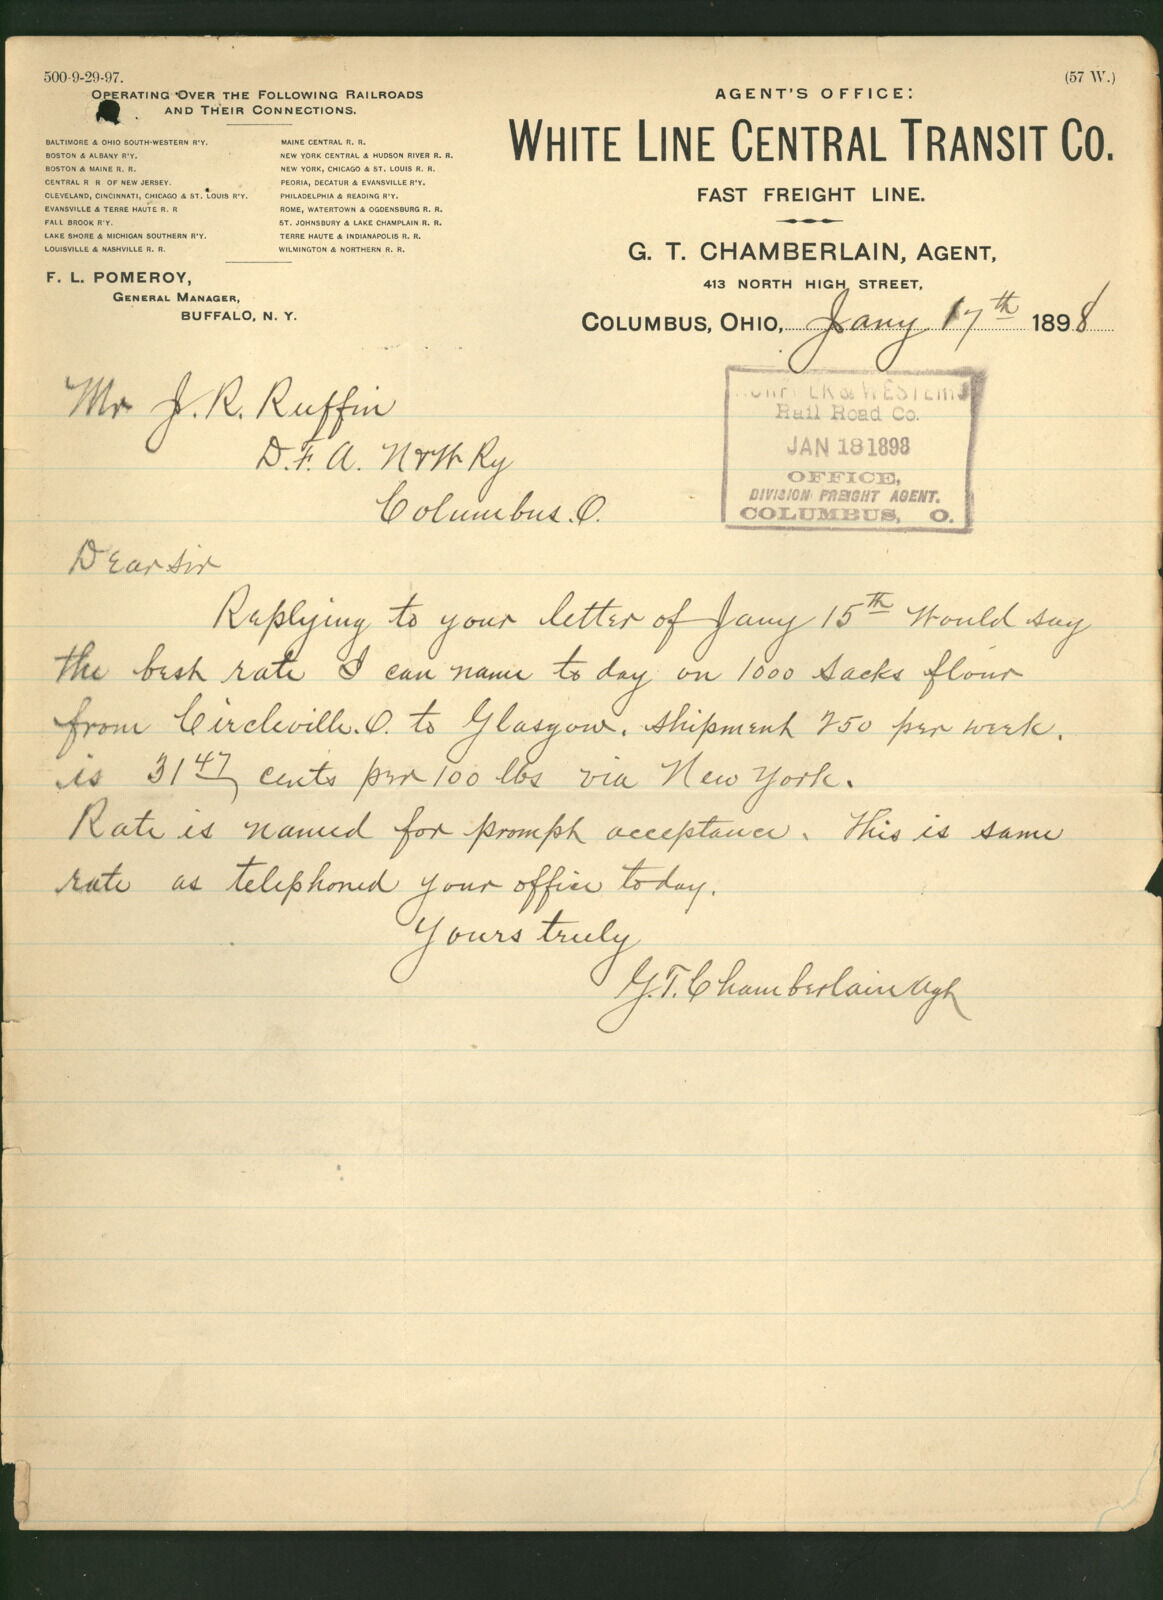 500-9-29-97.
(57 W.)
OPERATING OVER THE FOLLOWING RAILROADS
AND THEIR CONNECTIONS.
BALTIMORE & OHIO SOUTH-WESTERN R'Y.
BOSTON & ALBANY R'Y.
BOSTON & MAINE R. R.
CENTRAL R R OF NEW JERSEY.
CLEVELAND, CINCINNATI, CHICAGO & ST. LOUIS R'Y.
EVANSVILLE & TERRE HAUTE R. R
FALL BROOK R'Y.
LAKE SHORE & MICHIGAN SOUTHERN R'Y.
LOUISVILLE & NASHVILLE R. R.
MAINE CENTRAL R. R.
NEW YORK CENTRAL & HUDSON RIVER R. R.
NEW YORK, CHICAGO & ST. LOUIS R. R.
PEORIA, DECATUR & EVANSVILLE R'Y.
PHILADELPHIA & READING R'Y.
ROME, WATERTOWN & OGDENSBURG R. R.
ST. JOHNSBURY & LAKE CHAMPLAIN R. R.
TERRE HAUTE & INDIANAPOLIS R. R.
WILMINGTON & NORTHERN R. R.
F. L. POMEROY,
GENERAL MANAGER,
BUFFALO, N. Y.
AGENT'S OFFICE:
WHITE LINE CENTRAL TRANSIT CO.
FAST FREIGHT LINE.
G. T. CHAMBERLAIN, AGENT,
413 NORTH HIGH STREET,
COLUMBUS, OHIO, Jany 17th 1898
NORFOLK & WESTERN
Rail Road Co.
JAN 18 1898
OFFICE,
DIVISION FREIGHT AGENT.
COLUMBUS, O.
Mr J. R. Ruffin
D. F. A. N&W Ry
Columbus. O.
Dear Sir
Replying to your letter of Jany 15th would say
the best rate I can name to day on 1000 sacks flour
from Circleville. O. to Glasgow. shipment 250 per week.
is 31 47 cents per 100 lbs via New York.
Rate is named for prompt acceptance. This is same
rate as telephoned your office today.
Yours truly
G. T. Chamberlain Agt